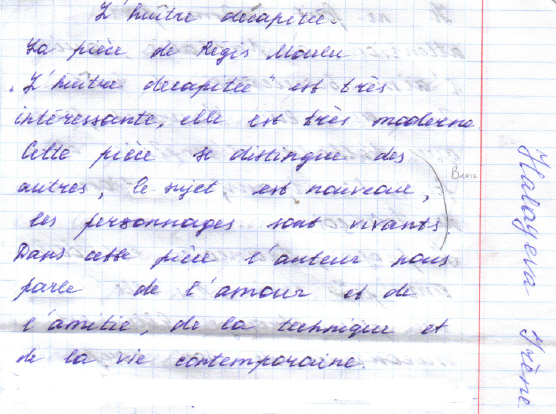 L'huître decapitée.
La pièce de Regis Moulu
"L'huître decapitée" est très
intéressante, elle est très moderne.
Cette pièce se distingue des
autres, le sujet est nouveau,
les personnages sont vivants.
Dans cette pièce l'auteur nous
parle de l'amour et de
l'amitié, de la technique et
de la vie contemporaine.
Irène